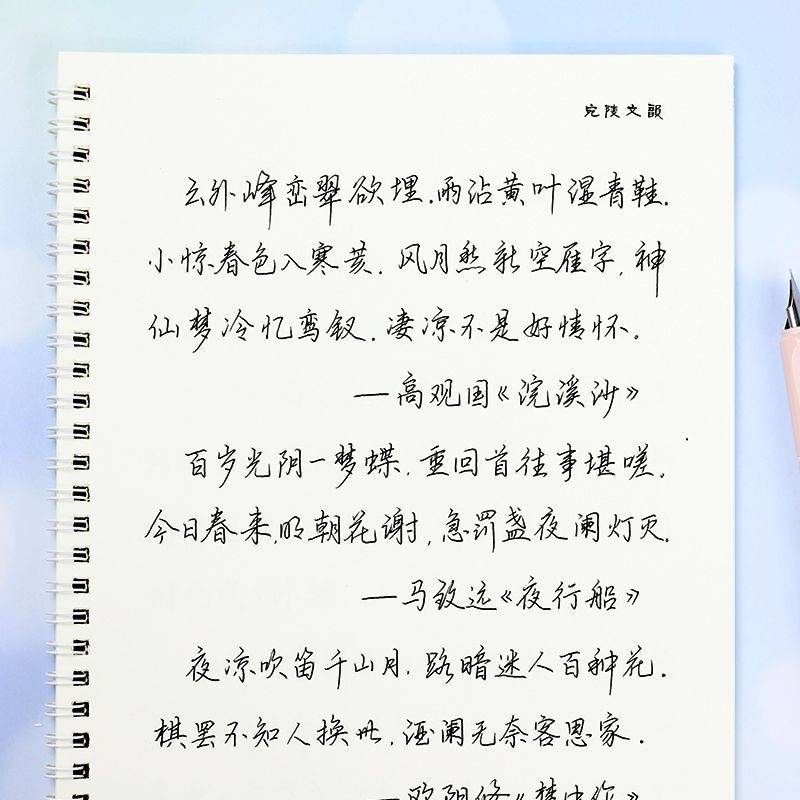 宛陵文韻
云外峰峦翠欲埋.雨沾黄叶湿青鞋.
小惊春色入寒荄.风月愁新空雁字,神
仙梦冷忆鸾钗.凄凉不是好情怀.
—高观国《浣溪沙》
百岁光阴一梦蝶.重回首往事堪嗟.
今日春来,明朝花谢,急罚盏夜阑灯灭.
—马致远《夜行船》
夜凉吹笛千山月.路暗迷人百种花.
棋罢不知人换世.酒阑无奈客思家.
—欧阳修《梦中作》